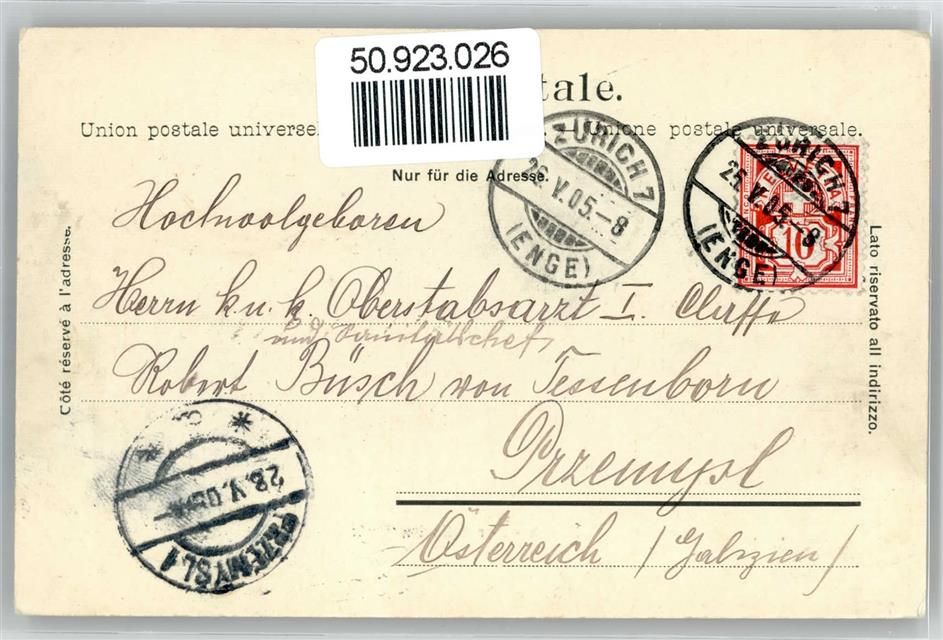 50.923.026
tale.
Union postale universe
Unione postale universale.
Nur für die Adresse.
ZÜRICH 7
25.V.05.-8
(ENGE)
ZÜRICH 7
25.V.05.-8
(ENGE)
10
Hochwolgeboren
Herrn k. u. k. Oberstabsarzt I. Claffe
und Sanitätschef
Robert Büsch von Tessenborn
Przemysl
Österreich / Galizien /
Côté réservé à l'adresse.
Lato riservato all indirizzo.
28.V.05
PRZEMYŚL 1